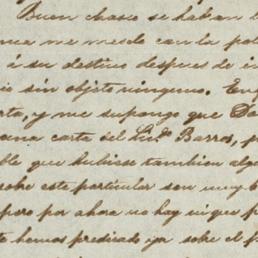 Buen chasco se habran
me mescle con la pol
á su destino despues de
sin objeto ninguno.
y me supongo que
una carta del Lic.do Barros,
que hubiese tambien alg
sobre este particular son muy b
pero por ahora no hay
hemos predicado ya sobre el p